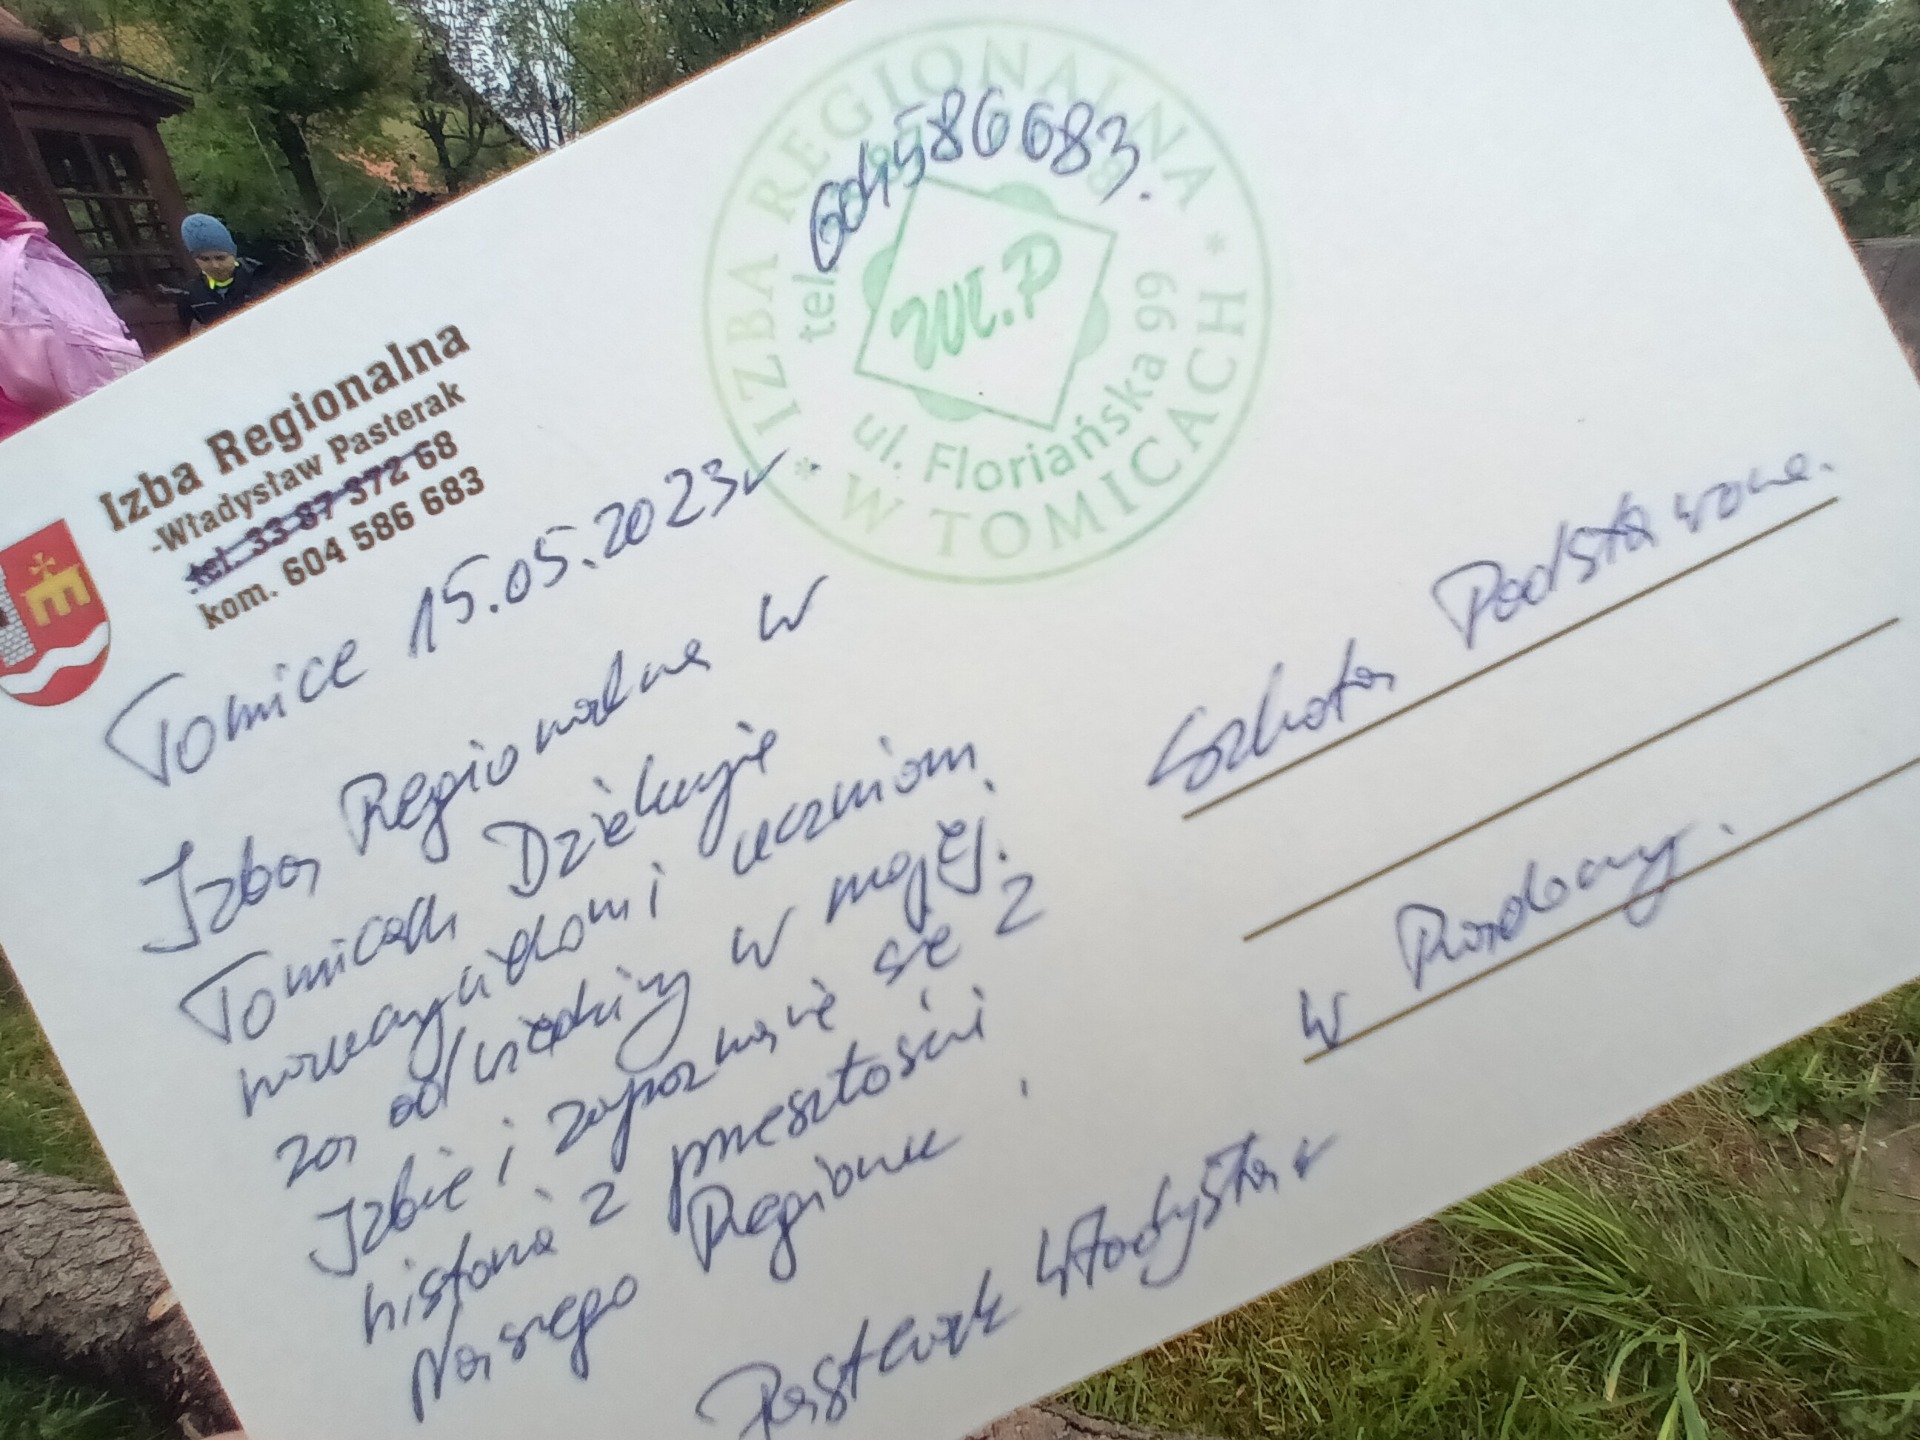 Izba Regionalna
-Władysław Pasterak
tel. 33 87 372 68
kom. 604 586 683
IZBA REGIONALNA
* W TOMICACH *
tel. 604586683.
WŁ.P
ul. Floriańska 99
Tomice 15.05.2023r
Izba Regionalna w
Tomicach Dziekuje
nauczycielom i uczniom
za odwiedziny w mojej.
Izbie i zapoznanie się z
historią z przeszłości
Naszego Regionu
Pasterak Władysław
Szkoła Podstawowa.
w